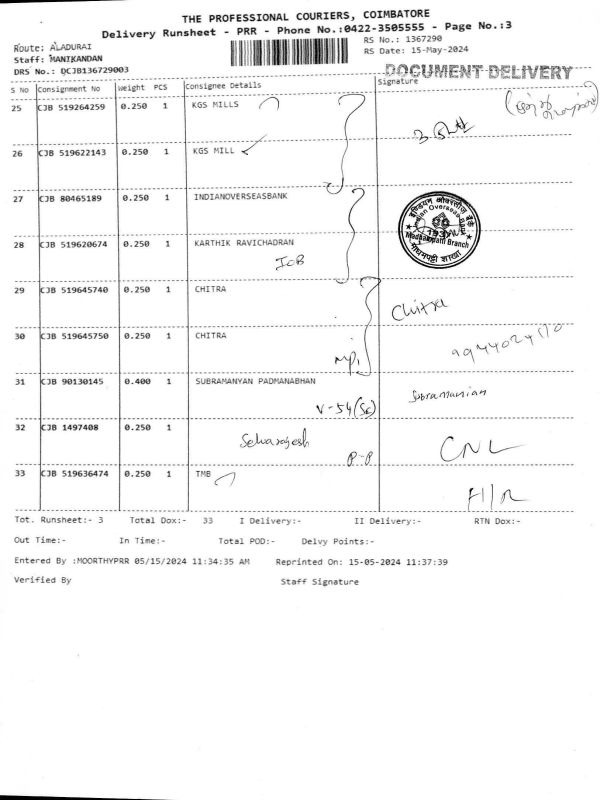 THE PROFESSIONAL COURIERS, COIMBATORE
Delivery Runsheet - PRR - Phone No.:0422-3505555 - Page No.:3
Route: ALADURAI
RS No.: 1367290
Staff: MANIKANDAN
RS Date: 15-May-2024
DRS No.: DCJB136729003
DOCUMENT DELIVERY
S No Consignment No Weight PCS Consignee Details Signature
25 CJB 519264259 0.250 1 KGS MILLS
26 CJB 519622143 0.250 1 KGS MILL
27 CJB 80465189 0.250 1 INDIANOVERSEASBANK
इण्डियन ओवरसीज़ बैंक
Indian Overseas Bank
Madhampatti Branch
28 CJB 519620674 0.250 1 KARTHIK RAVICHADRAN
IOB
29 CJB 519645740 0.250 1 CHITRA
Chitra
30 CJB 519645750 0.250 1 CHITRA
31 CJB 90130145 0.400 1 SUBRAMANYAN PADMANABHAN
Subramanian
V-54
32 CJB 1497408 0.250 1
Selvaragesh
P-P
CNL
33 CJB 519636474 0.250 1 TMB
Tot. Runsheet:- 3 Total Dox:- 33 I Delivery:- II Delivery:- RTN Dox:-
Out Time:- In Time:- Total POD:- Delvy Points:-
Entered By :MOORTHYPRR 05/15/2024 11:34:35 AM Reprinted On: 15-05-2024 11:37:39
Verified By Staff Signature